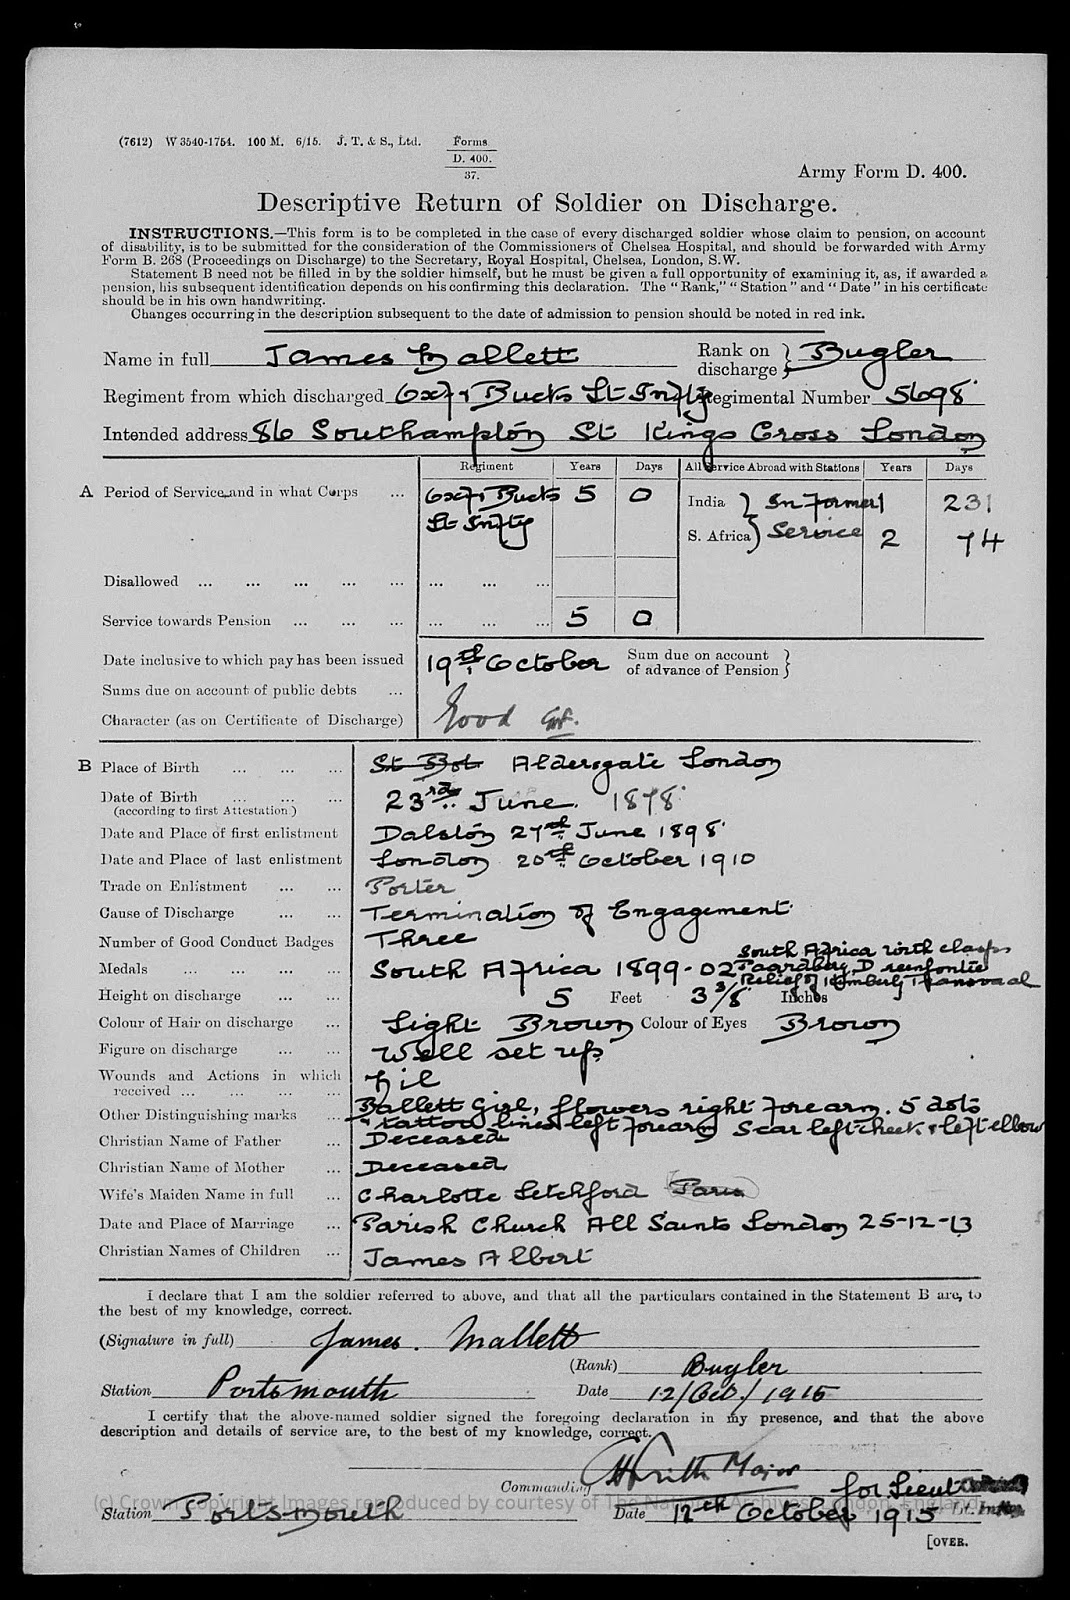 (7612) W 3540-1754. 100 M. 6/15. J. T. & S., Ltd. Forms D. 400. 37.
Army Form D. 400.
Descriptive Return of Soldier on Discharge.
INSTRUCTIONS.—This form is to be completed in the case of every discharged soldier whose claim to pension, on account
of disability, is to be submitted for the consideration of the Commissioners of Chelsea Hospital, and should be forwarded with Army
Form B. 268 (Proceedings on Discharge) to the Secretary, Royal Hospital, Chelsea, London, S.W.
Statement B need not be filled in by the soldier himself, but he must be given a full opportunity of examining it, as, if awarded a
pension, his subsequent identification depends on his confirming this declaration. The "Rank," "Station" and "Date" in his certificate
should be in his own handwriting.
Changes occurring in the description subsequent to the date of admission to pension should be noted in red ink.
Name in full James Mallett Rank on discharge } Bugler
Regiment from which discharged Oxf & Bucks Lt Infty Regimental Number 5698
Intended address 86 Southampton St Kings Cross London
Regiment Years Days All Service Abroad with Stations Years Days
A Period of Service and in what Corps ... Oxf & Bucks 5 0 India } In former 1 231
Lt Infty S. Africa } Service 2 74
Disallowed ... ... ... ... ... ... ... ...
Service towards Pension ... ... ... ... ... ... 5 0
Date inclusive to which pay has been issued 19th October Sum due on account of advance of Pension }
Sums due on account of public debts ...
Character (as on Certificate of Discharge) Good
B Place of Birth ... ... ... St Bot Aldersgate London
Date of Birth ... ... ... 23rd June 1878
(according to first Attestation)
Date and Place of first enlistment Dalston 27th June 1898
Date and Place of last enlistment London 20th October 1910
Trade on Enlistment ... ... Porter
Cause of Discharge ... ... Termination of Engagement
Number of Good Conduct Badges Three
Medals ... ... ... ... ... South Africa 1899-02 South Africa with clasps
Paardberg, Dreinfontie
Relief of Kimberly Transvaal
Height on discharge ... ... 5 Feet 3 3/8 Inches
Colour of Hair on discharge ... Light Brown Colour of Eyes Brown
Figure on discharge ... ... Well set up
Wounds and Actions in which received ... ... ... ... Nil
Other Distinguishing marks ... Ballett Girl, flowers right forearm. 5 dots
& tattoo lines left forearm Scar left cheek & left elbow
Christian Name of Father ... Deceased
Christian Name of Mother ... Deceased
Wife's Maiden Name in full ... Charlotte Letchford Paris
Date and Place of Marriage ... Parish Church All Saints London 25-12-13
Christian Names of Children ... James Albert
I declare that I am the soldier referred to above, and that all the particulars contained in the Statement B are, to
the best of my knowledge, correct.
(Signature in full) James. Mallett
(Rank) Bugler
Station Portsmouth Date 12/Oct/1915
I certify that the above-named soldier signed the foregoing declaration in my presence, and that the above
description and details of service are, to the best of my knowledge, correct.
Major
Commanding for Lieut
(c) Crown Copyright Images reproduced by courtesy of The National Archives, London, England
Station Portsmouth Date 12th October 1915 Lt. Inf
[OVER.